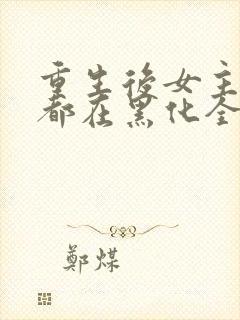 重生後女主
都在黑化全
鄭煤